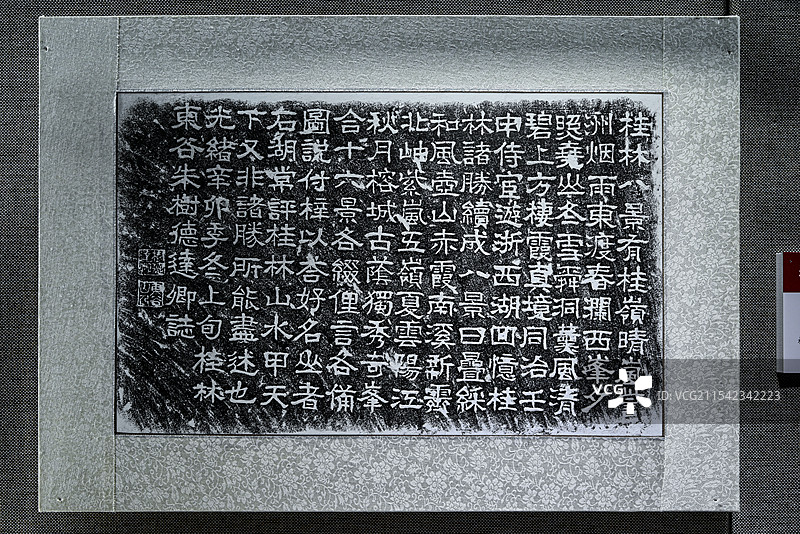 桂林八景有桂嶺晴嵐
洲烟雨東渡春瀾西峯夕
照堯山冬雪舜洞薰風清
碧上方棲霞真境同治壬
申侍宦遊浙西湖回憶桂
林諸勝續成八景曰疊綵
和風壺山赤霞南溪新霽
北岫紫嵐五嶺夏雲陽江
秋月榕城古蔭獨秀奇峯
合十六景各綴俚言各備
圖說付梓以荅好名山者
右胡常評桂林山水甲天
下又非諸勝所能盡述也
光緒辛卯季冬上旬桂林
東谷朱樹德達卿誌
VCG
VCG ID: VCG211542342223